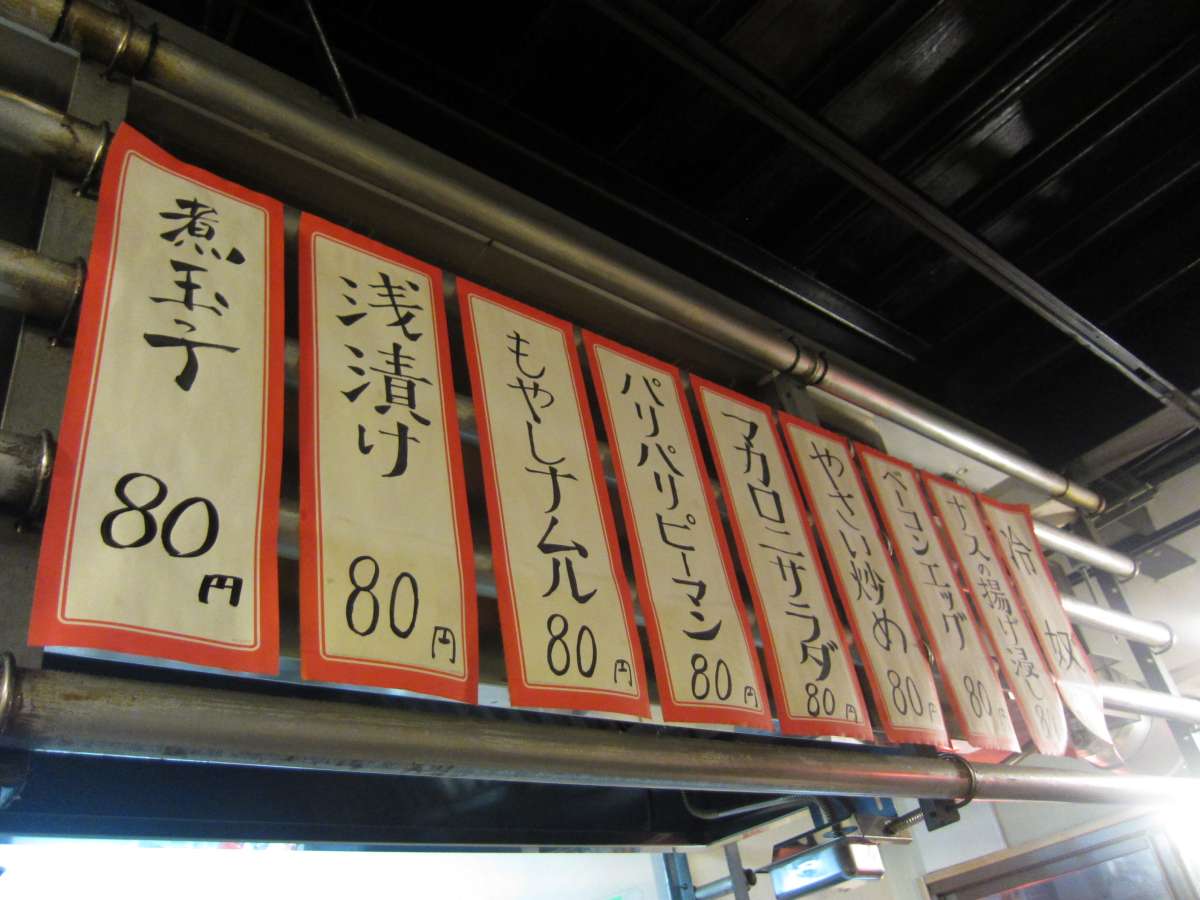 煮玉子
80円
浅漬け
80円
もやしナムル
80円
パリパリピーマン
80円
マカロニサラダ
80円
やさい炒め
80円
ベーコンエッグ
80円
ナスの揚げ浸し
80
冷奴